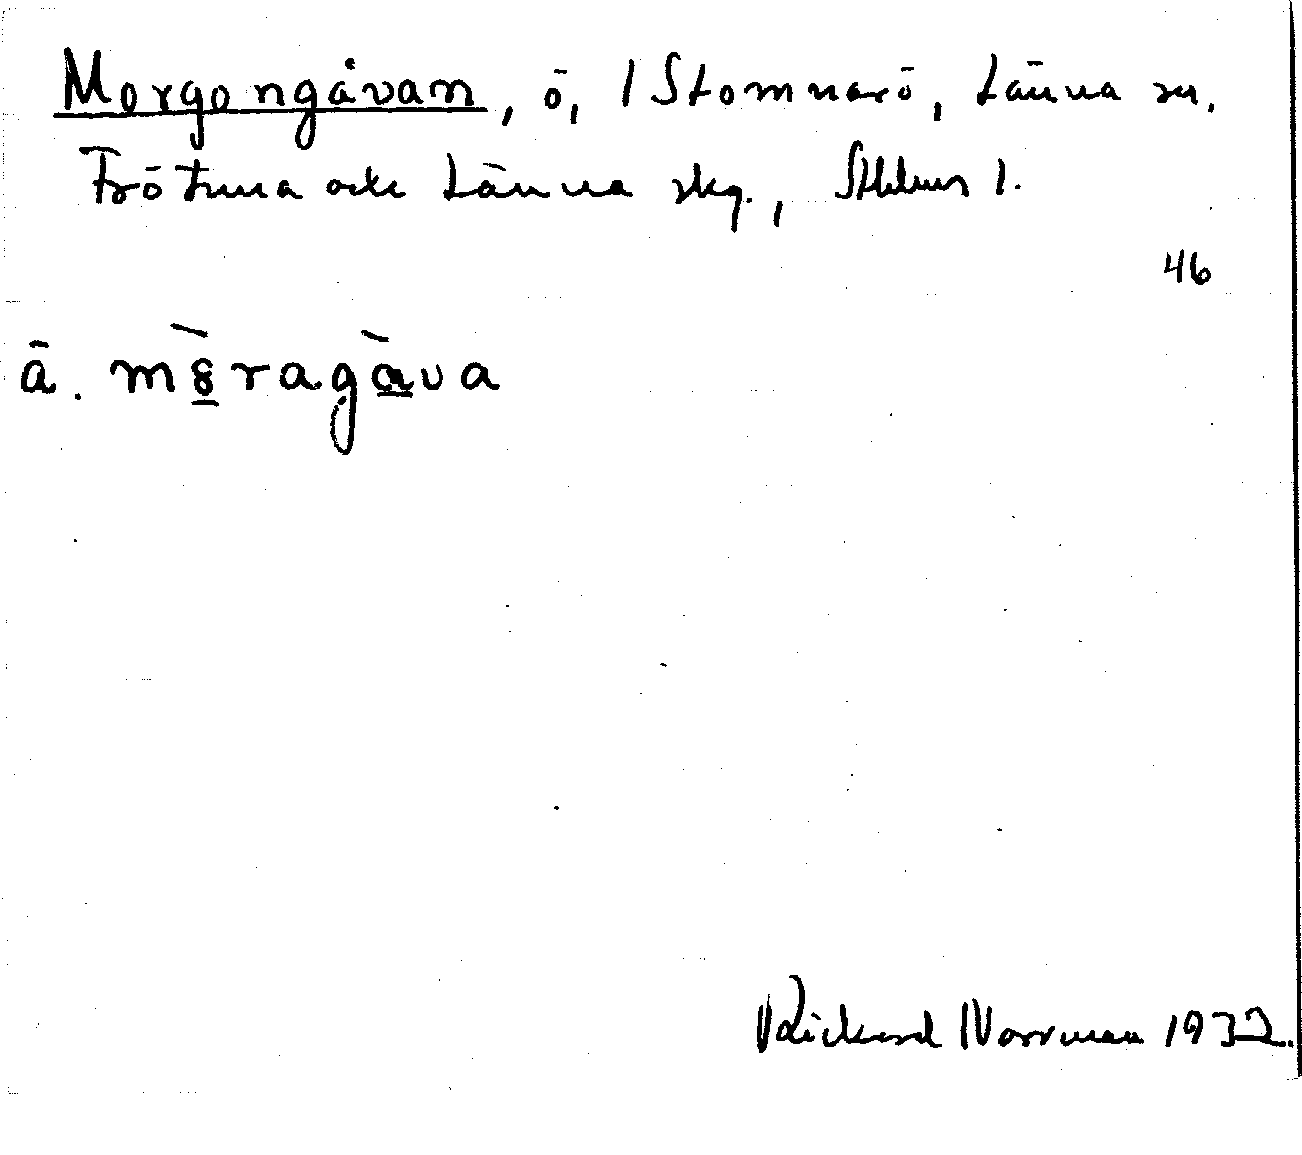 Morgongåvan, ö, 1 Stomnarö, Länna sn.
Frötuna och Länna skg., Sthlms l.
46
ä. mȣ̀ragàva
Rickard Norrman 1932.